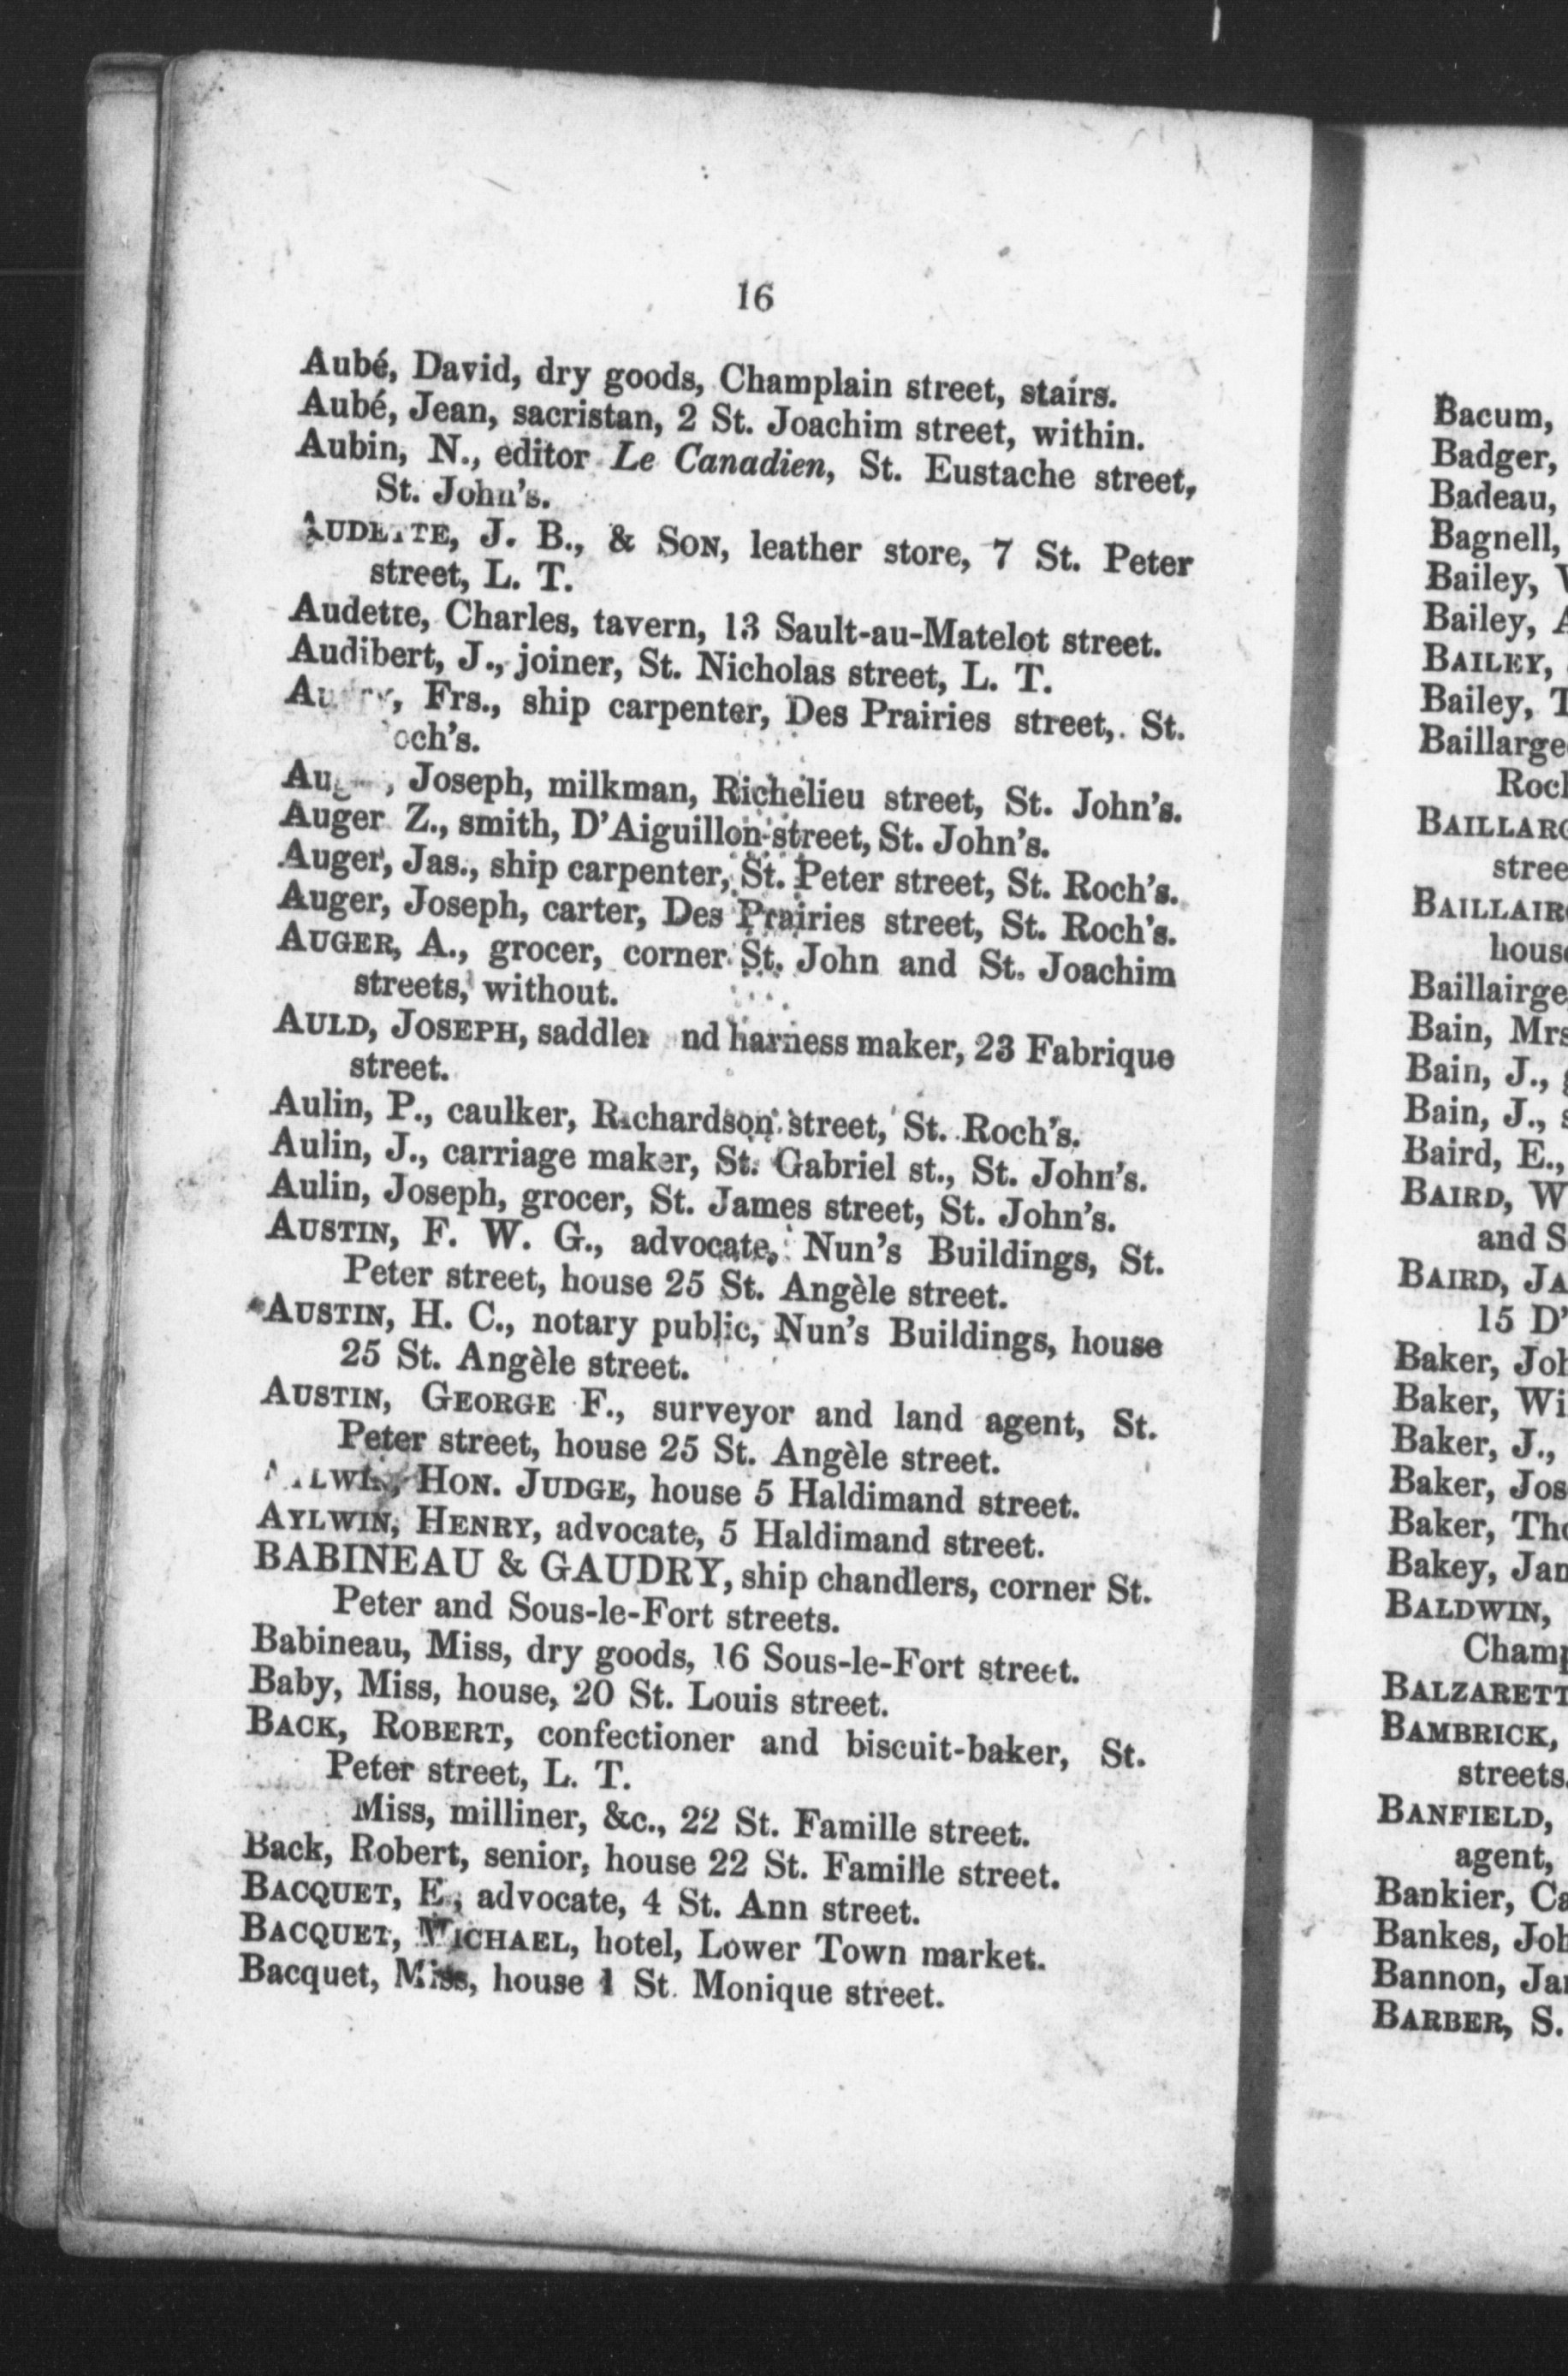 16
Aubé, David, dry goods, Champlain street, stairs.
Aubé, Jean, sacristan, 2 St. Joachim street, within.
Aubin, N., editor Le Canadien, St. Eustache street,
St. John's.
AUDETTE, J. B., & SON, leather store, 7 St. Peter
street, L. T.
Audette, Charles, tavern, 13 Sault-au-Matelot street.
Audibert, J., joiner, St. Nicholas street, L. T.
Frs., ship carpenter, Des Prairies street, St.
och's.
Joseph, milkman, Richelieu street, St. John's.
Auger Z., smith, D'Aiguillon street, St. John's.
Auger, Jas., ship carpenter, St. Peter street, St. Roch's.
Auger, Joseph, carter, Des Prairies street, St. Roch's.
AUGER, A., grocer, corner St. John and St. Joachim
streets, without.
AULD, JOSEPH, saddler nd harness maker, 23 Fabrique
street.
Aulin, P., caulker, Richardson street, St. Roch's.
Aulin, J., carriage maker, St. Gabriel st., St. John's.
Aulin, Joseph, grocer, St. James street, St. John's.
AUSTIN, F. W. G., advocate, Nun's Buildings, St.
Peter street, house 25 St. Angèle street.
AUSTIN, H. C., notary public, Nun's Buildings, house
25 St. Angèle street.
AUSTIN, GEORGE F., surveyor and land agent, St.
Peter street, house 25 St. Angèle street.
HON. JUDGE, house 5 Haldimand street.
AYLWIN, HENRY, advocate, 5 Haldimand street.
BABINEAU & GAUDRY, ship chandlers, corner St.
Peter and Sous-le-Fort streets.
Babineau, Miss, dry goods, 16 Sous-le-Fort street.
Baby, Miss, house, 20 St. Louis street.
BACK, ROBERT, confectioner and biscuit-baker, St.
Peter street, L. T.
Miss, milliner, &c., 22 St. Famille street.
Back, Robert, senior, house 22 St. Famille street.
BACQUET, E., advocate, 4 St. Ann street.
BACQUET, MICHAEL, hotel, Lower Town market.
Bacquet, Miss, house 1 St. Monique street.
Bacum,
Badger,
Badeau,
Bagnell,
Bailey,
Bailey,
BAILEY,
Bailey, T
Baillarge
Roch
BAILLARG
stree
BAILLAIR
house
Baillairge
Bain, Mrs
Bain, J.,
Bain, J.,
Baird, E.,
BAIRD, W
and S
BAIRD, JA
15 D'
Baker, Joh
Baker, Wi
Baker, J.,
Baker, Jos
Baker, Tho
Bakey, Jan
BALDWIN,
Champ
BALZARETT
BAMBRICK,
streets.
BANFIELD,
agent,
Bankier, Ca
Bankes, Joh
Bannon, Jan
BARBER, S.